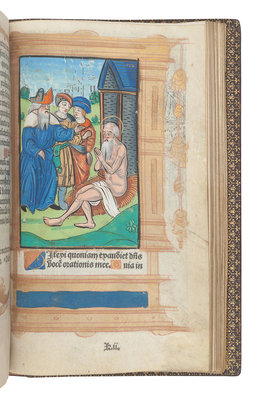 Ilexi quoniam exaudiet dñs
vocē orationis mee. Quia in